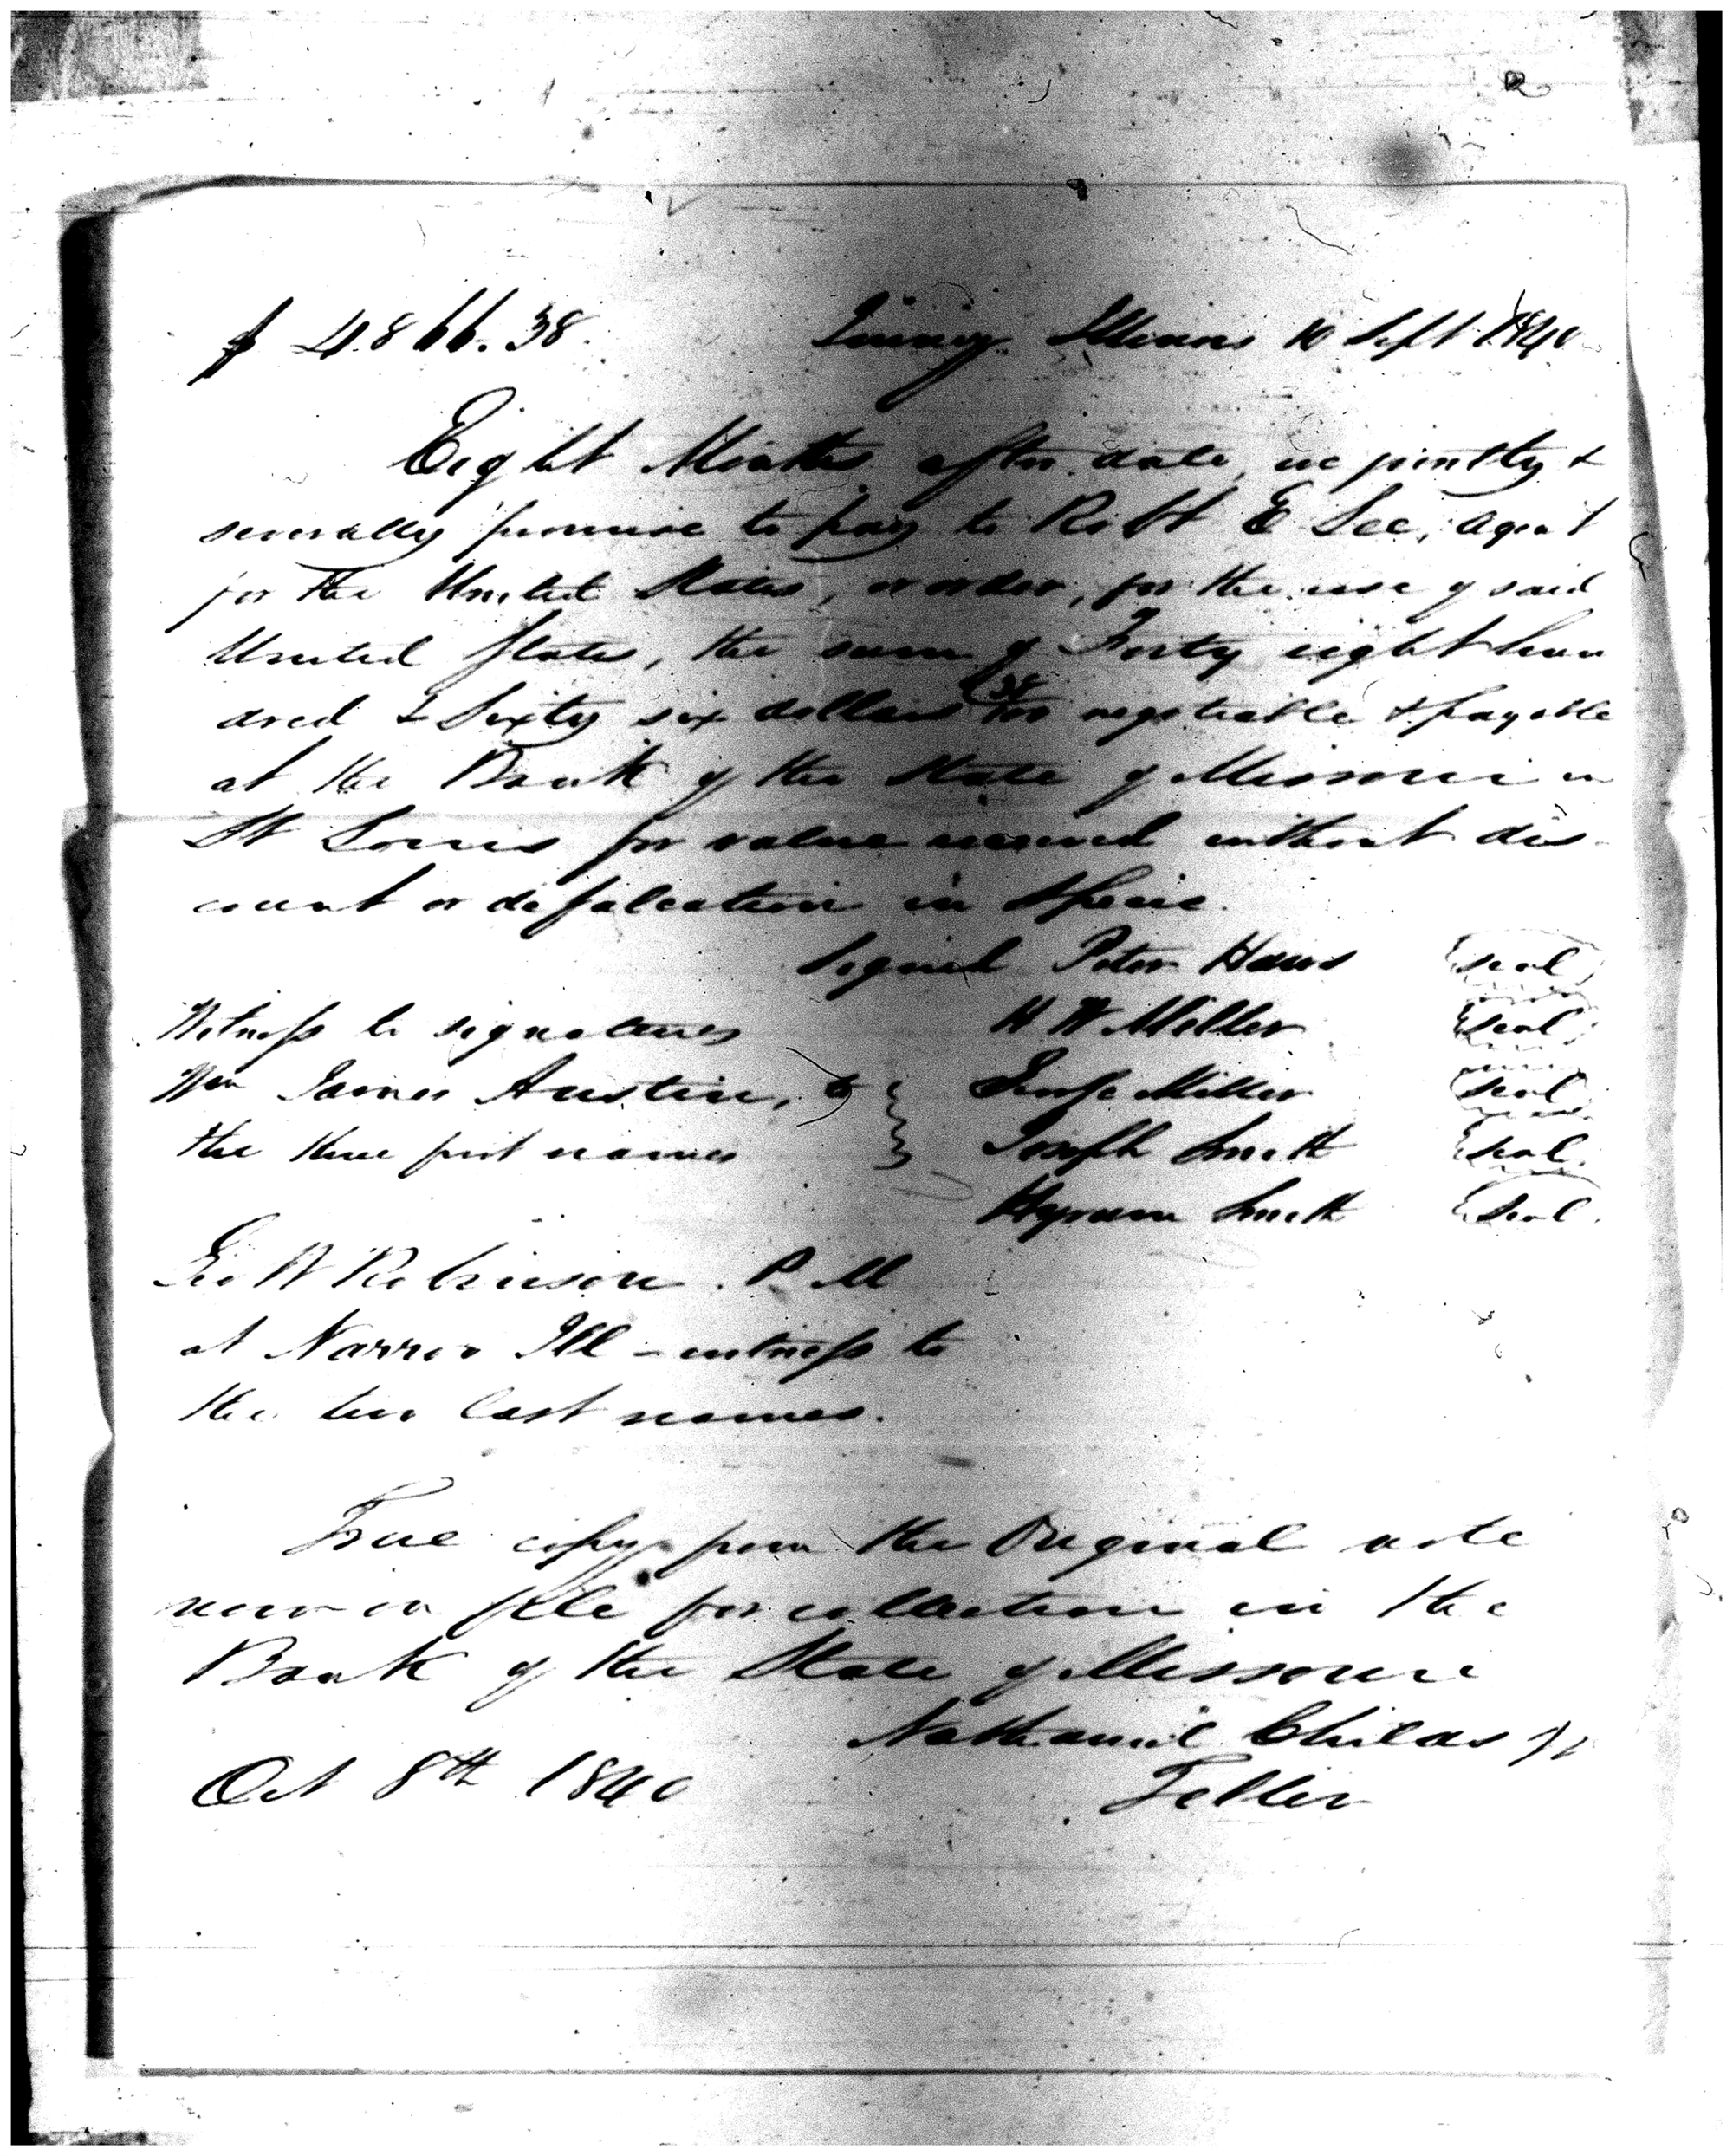 $ 4866.38. Quincy Illinois 10 Sept 1840
Eight Months after date, we jointly &
severally promise to pay to Robt E Lee, agent
for the United States, or order, for the use of said
United States, the sum of Forty eight hun
dred & Sixty six dollars 38/100 negotiable & payable
at the Bank of the State of Missouri in
St Louis for value received without dis-
count or defalcation in Specie.
Signed Peter Haws {seal}
Witness to signatures H W Miller {seal}
Wm James Austin, to } George Miller {seal}
the three first names } Joseph Smith {seal}
Hyrum Smith {seal}
Geo W Robinson. P. M
at Narvoo Ill - witness to
the two last names.
True copy from the Original note
now on file for collection in the
Bank of the State of Missouri
Nathaniel Childs Jr
Oct 8th 1840 Teller